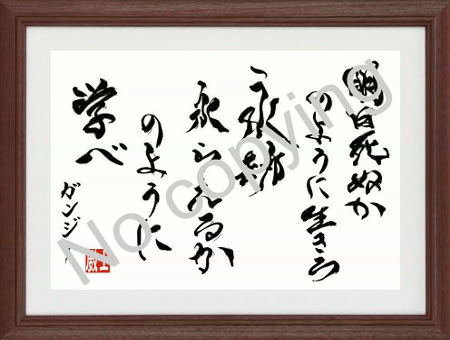 明日死ぬか
のように生きろ
永劫
永らえるか
のように
学べ
ガンジー
No copying